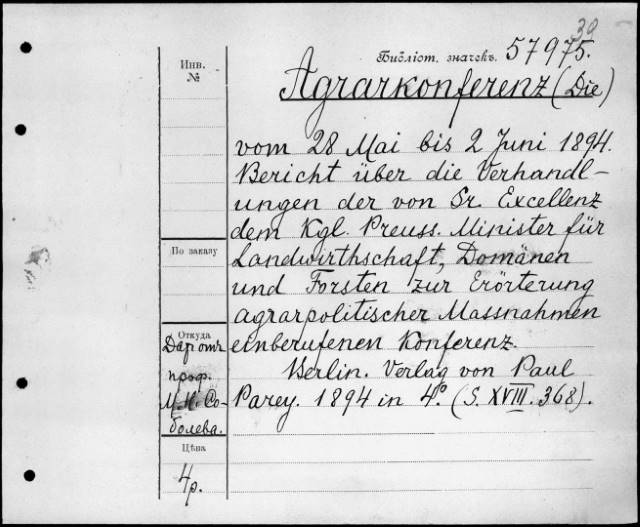 39
Библіот. значекъ. 57975.
Инв.
№
Agrarkonferenz (Die)
vom 28 Mai bis 2 Juni 1894.
Bericht über die Verhandl-
ungen der von Sr. Excellenz
dem Kgl. Preuss. Minister für
Landwirthschaft, Domänen
und Forsten zur Erörterung
agrarpolitischer Massnahmen
einberufenen Konferenz.
Berlin. Verlag von Paul
Parey. 1894 in 4º. (S. XVIII. 368).
По заказу
Откуда
Даръ отъ
проф.
М.Н. Со-
болева.
Цѣна
4р.